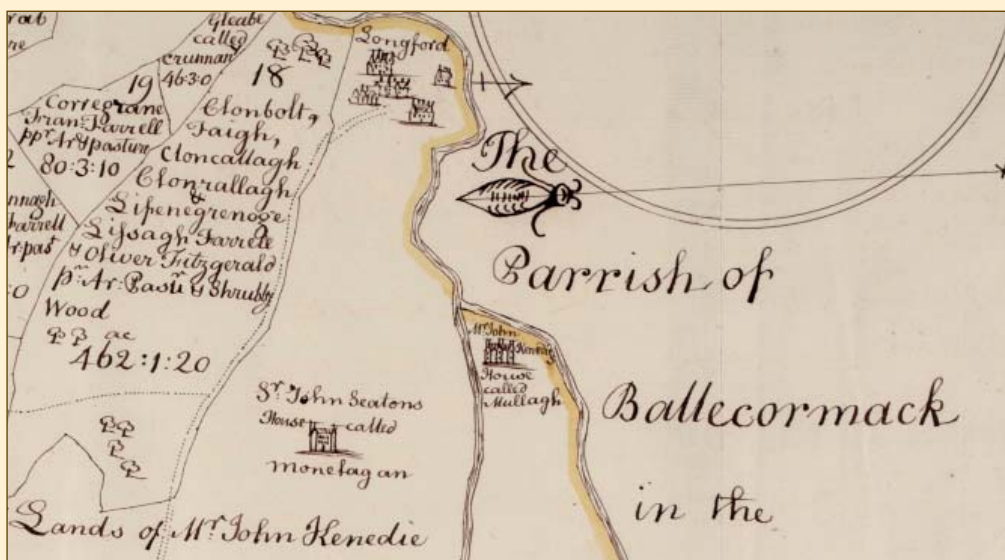 Gleabe
called
Crunnan
46:3:0
19
Corregrane
Fran: Farrell
ppr Ar & pasture
80:3:10
nnagh
arrell
18
Clonbolt,
Faigh,
Cloncallagh
Clonrallagh
&
Lissenegrenoge
Lissagh Farrele
& Oliver Fitzgerald
pr. Ar. Pastu & Shrubby
Wood
ac
462:1:20
Longford
The
Parrish of
Ballecormack
in the
Mr John
Kenedig
House
called
Mullagh
Sr John Seatons
House called
monetagan
Lands of Mr John Kenedie